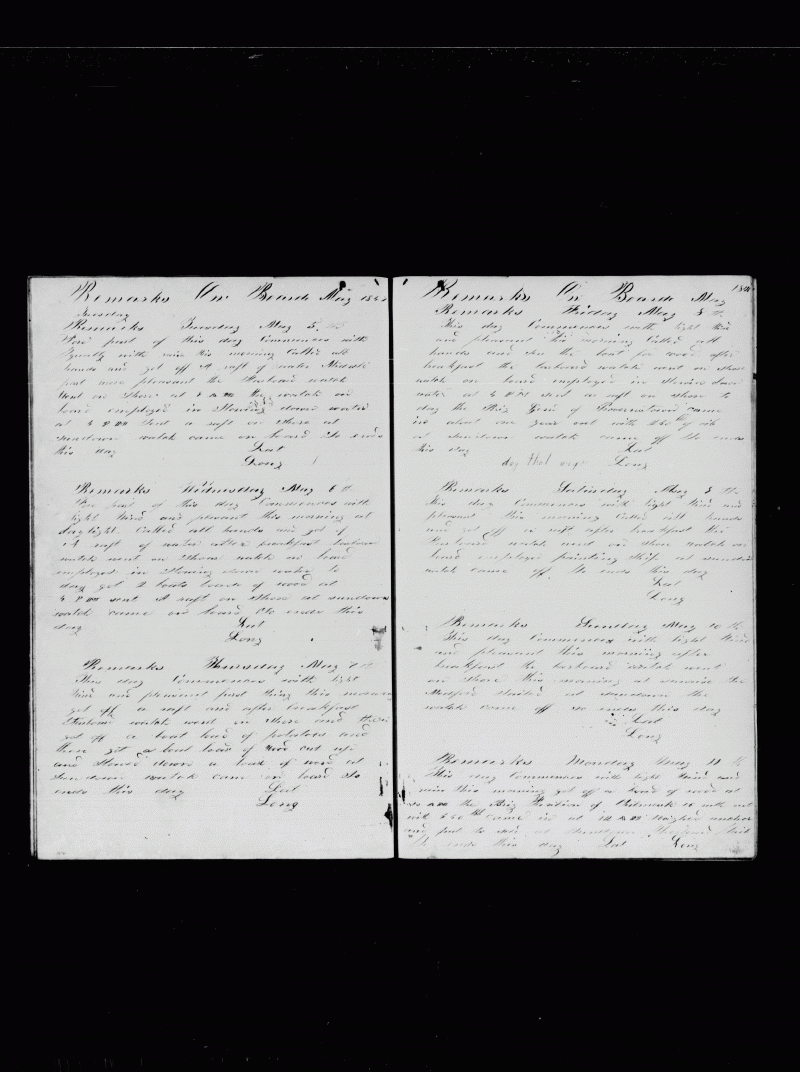 Remarks On Board May 184
Tuesday
Remarks Tuesday May 5th
part of this day Commences with
Squally with rain this morning Called all
hands and got off A raft of water
part more pleasant the Starboard watch
went on Shore at 8 AM the watch on
board employed in Stowing down water
at 4 PM sent A raft on Shore at
Sundown watch came on board So ends
this day Lat
Long
Remarks Wednesday May 6th
part of this day Commences with
light Wind and pleasant this morning at
daylight Called all hands and got of
A raft of water after breakfast Larboard
watch went on Shore watch on board
employed in Stowing down water to
day got 2 boats loads of wood at
4 PM sent A raft on Shore at sundown
watch came on board So ends this
day Lat
Long
Remarks Thursday May 7th
This day Commences with light
Wind and pleasant first thing this morning
got off a raft and after breakfast
Starboard watch went on Shore and then
got off a boat load of potatoes and
then got a boat load of Wood cut up
and Stowed down a boat of wood at
Sundown watch came on board So
ends this day Lat
Long
Remarks On Board May 184
Remarks Friday May 8th
This day Commences with light Wind
and pleasant this morning Called all
hands and the boat for wood after
breakfast the larboard watch went on Shore
watch on board employed in Stowing down
water at 4 PM sent a raft on Shore to
day the Brig of came
in about one year out with 250 of oil
at Sundown watch came off So ends
this day Lat
Long
Remarks Saturday May 8th
this day Commences with light Wind and
pleasant this morning Called all hands
and got off a raft after breakfast the
Starboard watch went on Shore watch on
board employed painting Ship at sundown
watch came off So ends this day
Lat
Long
Remarks Sunday May 10th
This day Commences with light Wind
and pleasant this morning after
breakfast the larboard watch went
on Shore this morning at sunrise the
at sundown the
watch came off so ends this day
Lat
Long
Remarks Monday May 11th
This day Commences with light Wind and
rain this morning got off a boat of wood at
AM the Brig of mth out
with came in at 10 AM Weighed anchor
and put to sea at
So ends this day Lat Long